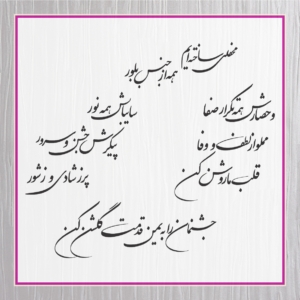 محفلی ساخته‌ایم
همه از جنس بلور
و حصارش همه تکرار صفا
سایبانش همه نور
مملو از لطف و وفا
پیکرش جشن و سرور
قلب ما روشن کن
پر ز شادی و ز شور
جشنمان را به یمن قدمت گلشن کن